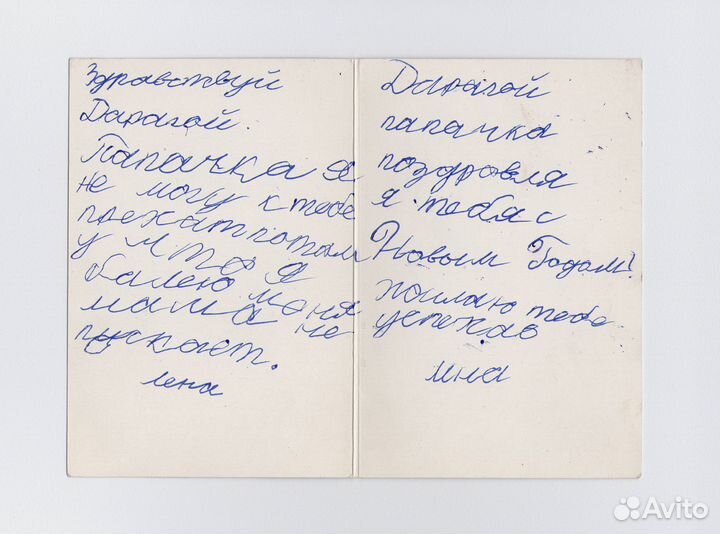 Здравствуй
Дарагой.
Папачка я
не могу к тебе
прехат потому
у што я
балею меня
мама не
пускает.
лена
Дарагой
папачка
поздровля
я тебя с
Новым Годом!
жилаю тебе
успехов
инна
Avito